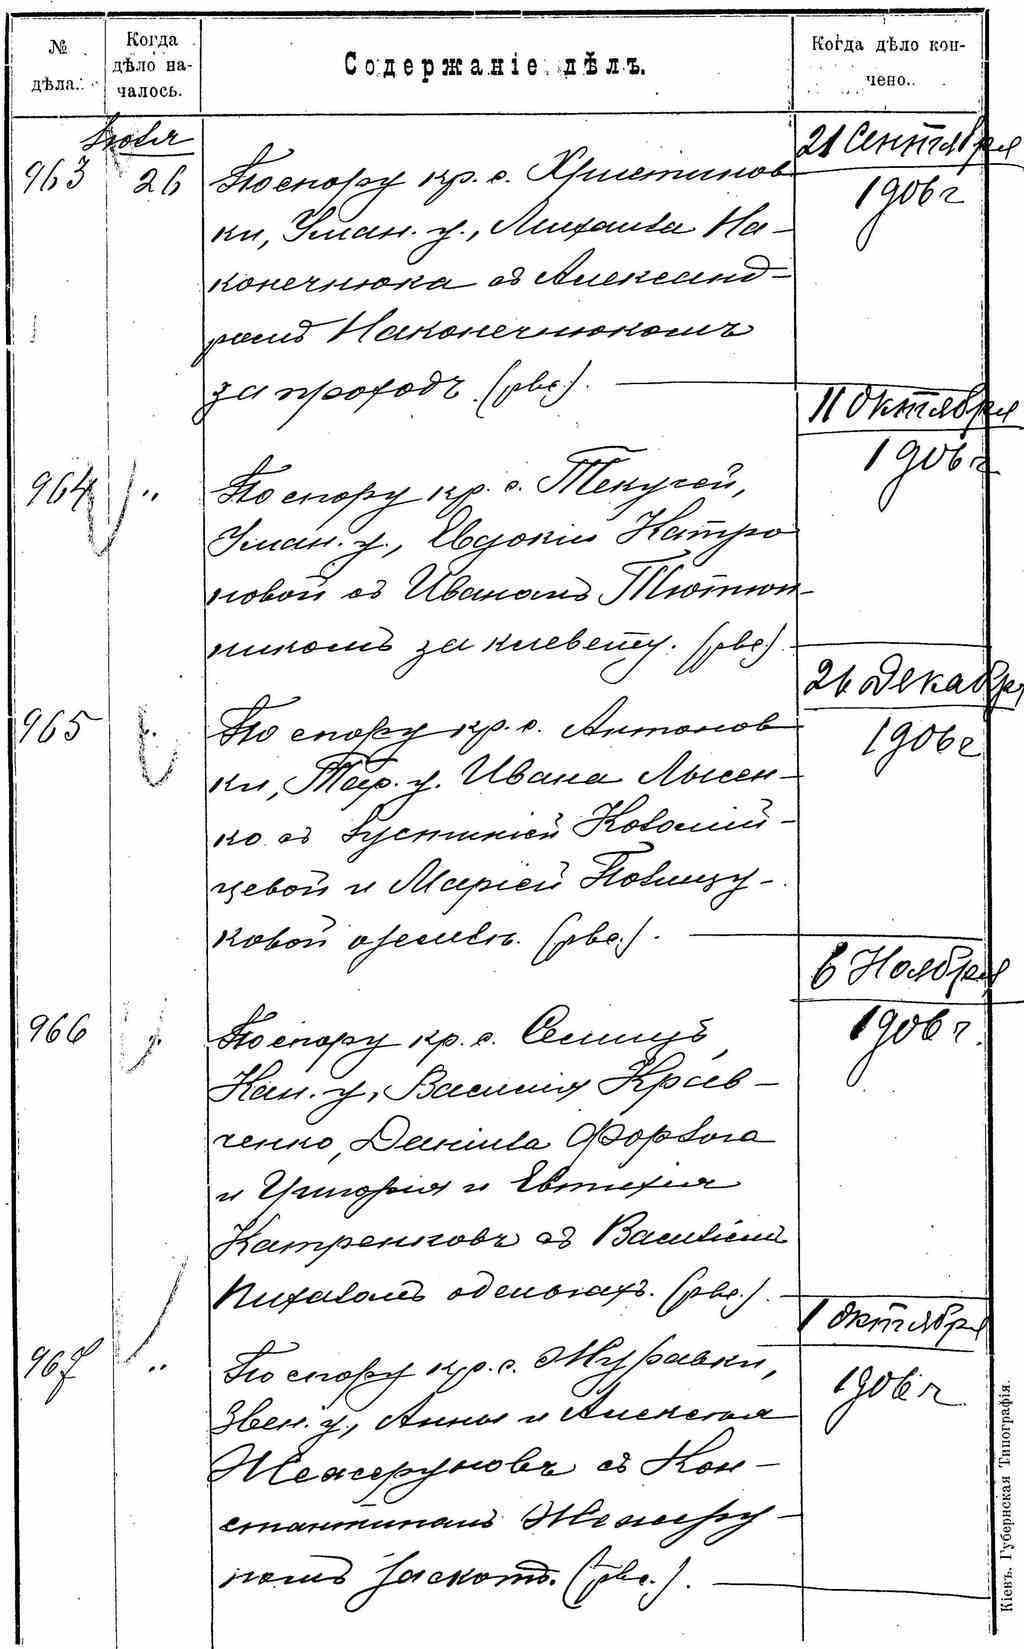 № дѣла.
Когда дѣло началось.
Содержаніе дѣлъ.
Когда дѣло кончено.
Іюля
963
26
По спору кр. с. Христинов
ки, Уман. у., Михаила На-
конечнюка съ Александ-
ромъ Наконечнюкомъ
за проходъ.
21 Сентября
1906 г
964
"
По спору кр. с. Текучей,
Уман. у., Евдокіи Катро
новой съ Иваномъ Тютюн-
никомъ за клевету.
11 Октября
1906 г
965
По спору кр. с. Антонов
ки, Тар. у. Ивана Лысен-
ко съ Іустиніей Коломій-
цевой и Маріей Полищу-
ковой о землѣ.
26 Декабр
1906 г
966
По спору кр. с.
Кан. у, Василія Крав-
ченко, Даніила
и Григорія и Евтихія
Катренковъ съ Василіемъ
Пихаломъ о деньгахъ.
6 Ноября
1906 г.
967
"
По спору кр. с. Журавки,
Звен. у., Анны и Алексѣя
Межеруновъ съ Кон-
стантиномъ Межеру-
номъ за скотъ.
1 Октября
1906 г.
Кіевъ. Губернская Типографія.